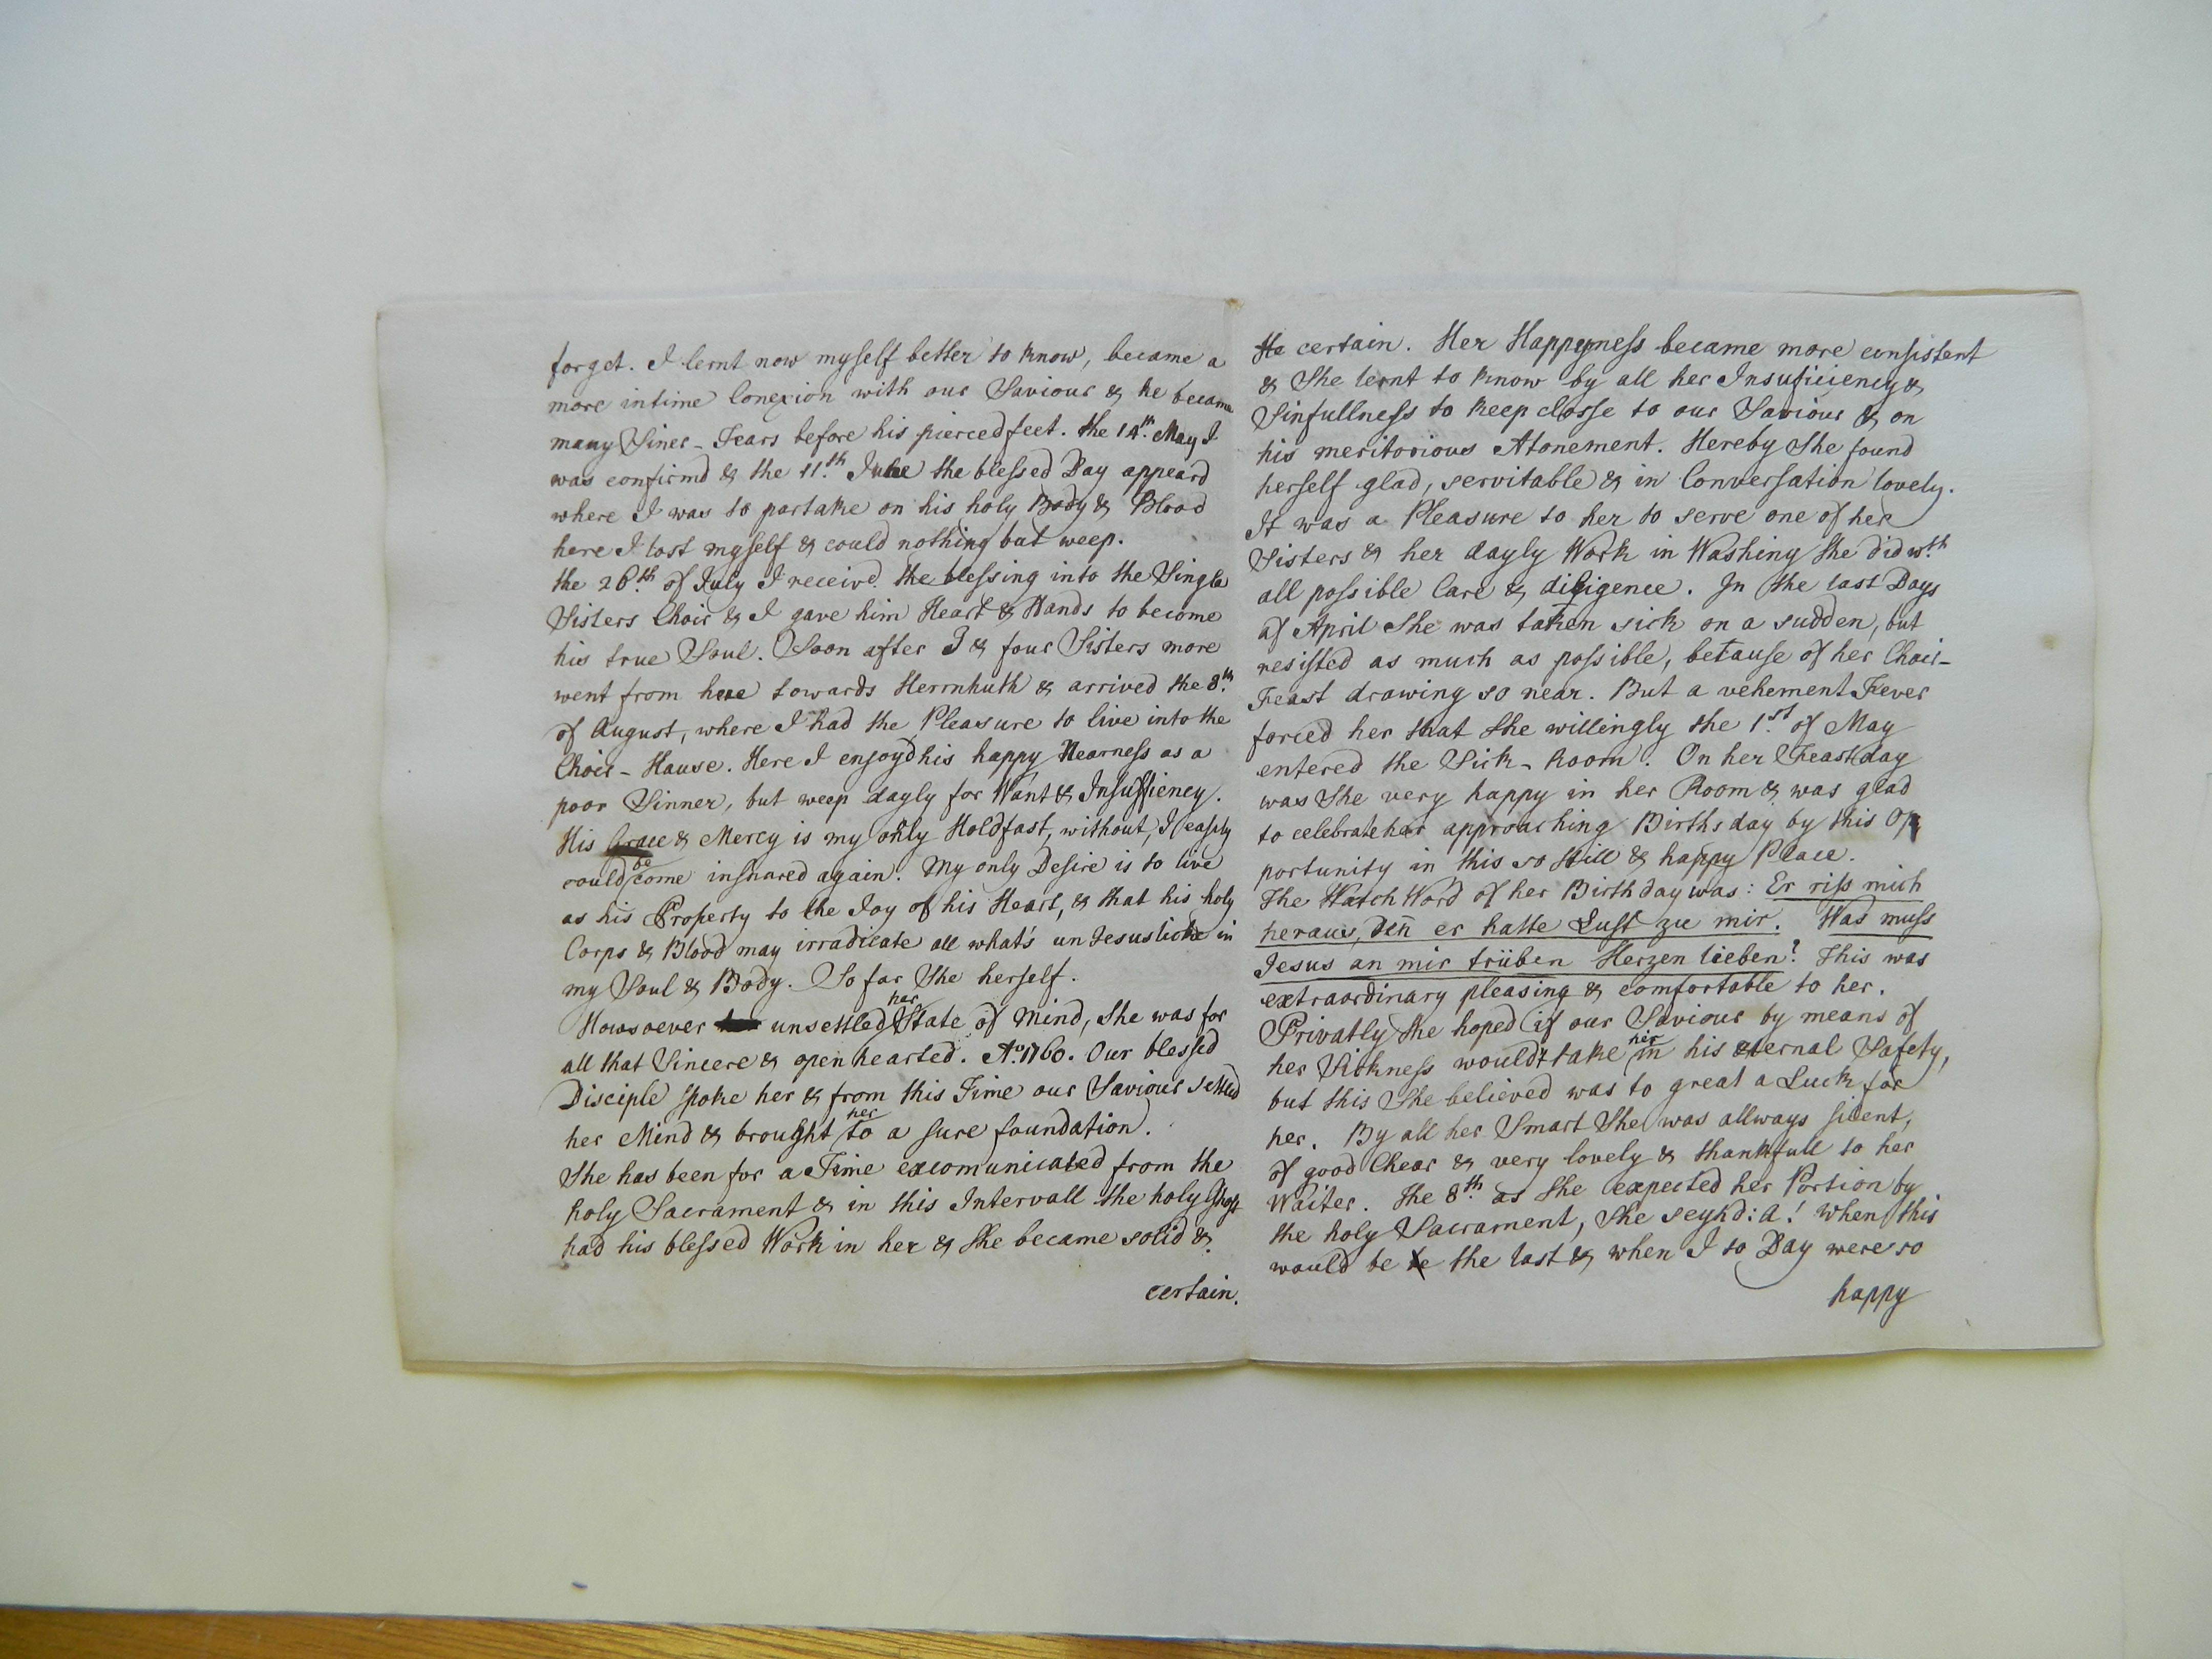 forget. I lernt now myself better to know, became a
more intime Conexion with our Saviour & he became
many Siner-Tears before his pierced feet. the 14th. May I
was confirmd & the 11th. June the blessed Day appeard
where I was to partake on his holy Body & Blood
here I lost myself & could nothing but weep.
the 26th. of July I receivd the blessing into the Single
Sisters Choir & I gave him Heart & Hands to become
his true Soul. Soon after I & four Sisters more
went from here towards Herrnhuth & arrived the 8th.
of August, where I had the Pleasure to live into the
Choir-Hause. Here I enjoyd his happy Nearness as a
poor Sinner, but weep dayly for Want & Insuffiency.
His Grace & Mercy is my only Holdfast, without, I easyly
could become insnared again. My only Desire is to live
as his Property to the Joy of his Heart, & that his holy
Corps & Blood may irradicate all what's un Jesusliche in
my Soul & Body. So far She herself.
Howsoever unsettled her State of Mind, she was for
all that Sincere & open hearted. Ao. 1760. Our blessed
Disciple spoke her & from this Time our Saviour settled
her Mind & brought her to a sure foundation.
She has been for a Time excomunicated from the
holy Sacrament & in this Intervall the holy Ghost
had his blessed Work in her & She became solid &
certain.
He certain. Her Happyness became more consistent
& She lernt to know by all her Insuficiency &
Sinfullness to keep closse to our Saviour & on
his meritorious Atonement. Hereby She found
herself glad, servitable & in Conversation lovely.
It was a Pleasure to her to serve one of her
Sisters & her dayly Work in Washing She did wth.
all possible Care & diligence. In the last Days
of April She was taken sick on a sudden, but
resisted as much as possible, betause of her Choir-
Feast drawing so near. But a vehement Fever
forced her that She willingly the 1st. of May
entered the Sick-Room. On her Feastday
was She very happy in her Room & was glad
to celebrate her approaching Birthsday by this Op
portunity in this so still & happy Place.
The Watch Word of her Birthday was: Er riss mich
heraus, deñ er hatte Lust zu mir. Was muss
Jesus an mir trüben Herzen lieben? This was
extraordinary pleasing & comfortable to her.
Privatly She hoped if our Saviour by means of
her Sickness would take her in his eternal Safety,
but this She believed was to great a Luck for
her. By all her Smart She was allways silent,
of good Chear & very lovely & thankfull to her
Waiter. The 8th. as She expected her Portion by
the holy Sacrament, She seyhd: A! when this
would be be the last & when I to Day were so
happy